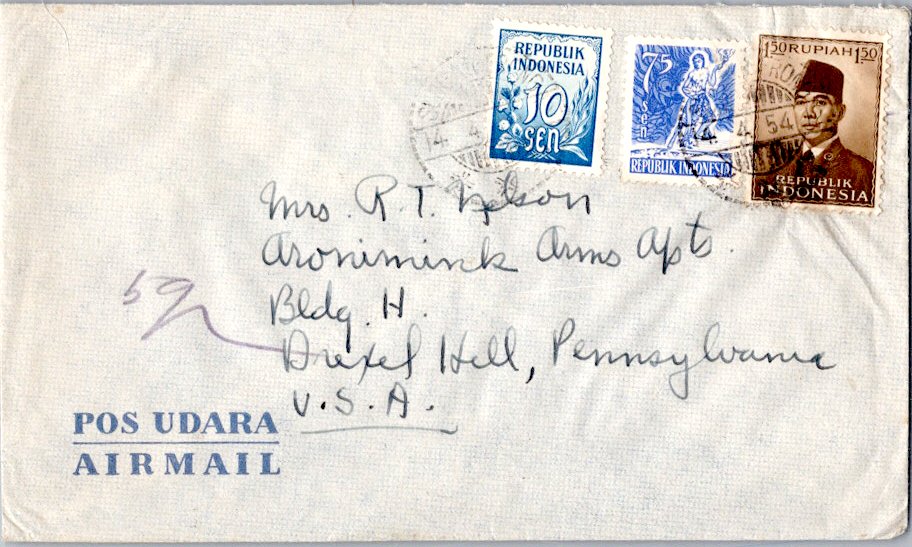 REPUBLIK
INDONESIA
10
SEN
75
sen
REPUBLIK INDONESIA
1.50 RUPIAH 1.50
REPUBLIK
INDONESIA
14 4
14. 4 54
Mrs. R. T. Nelson
Aronimink Arms Apts.
Bldg. H.
Drexel Hill, Pennsylvania
U.S.A.
POS UDARA
AIRMAIL